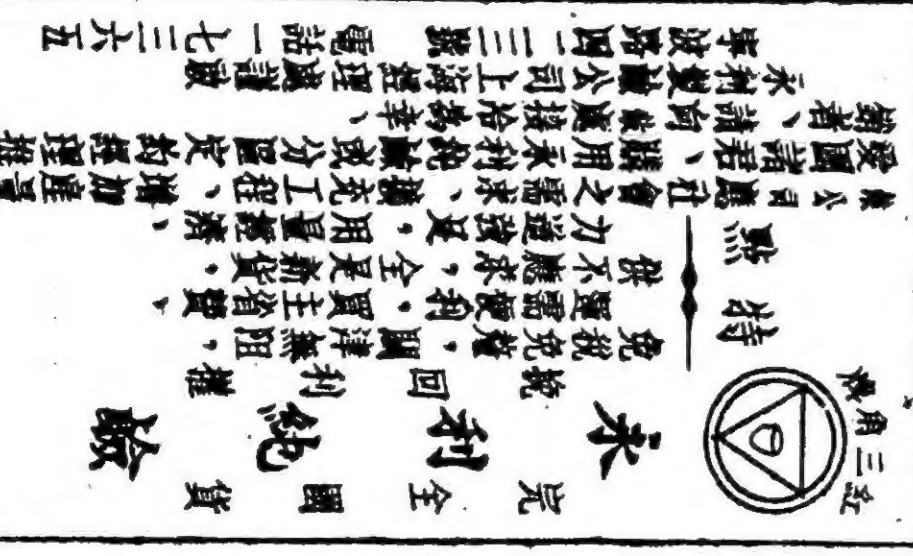 紅三角牌
完全國貨
永利純鹼
挽回利權
特點
免稅免釐，關津無阻，
運輸便利，買主省費、
供不應求，全是新貨，
力道強足，用量經濟，
敝公司應社會之需求、擴充工程、增加產量
愛國諸君、購用永利純鹼或分區定約經理推
銷者、請向敝處接洽為幸、
永利製鹼公司上海經理處謹啟
寧波路四一二三號 電話一七三六五